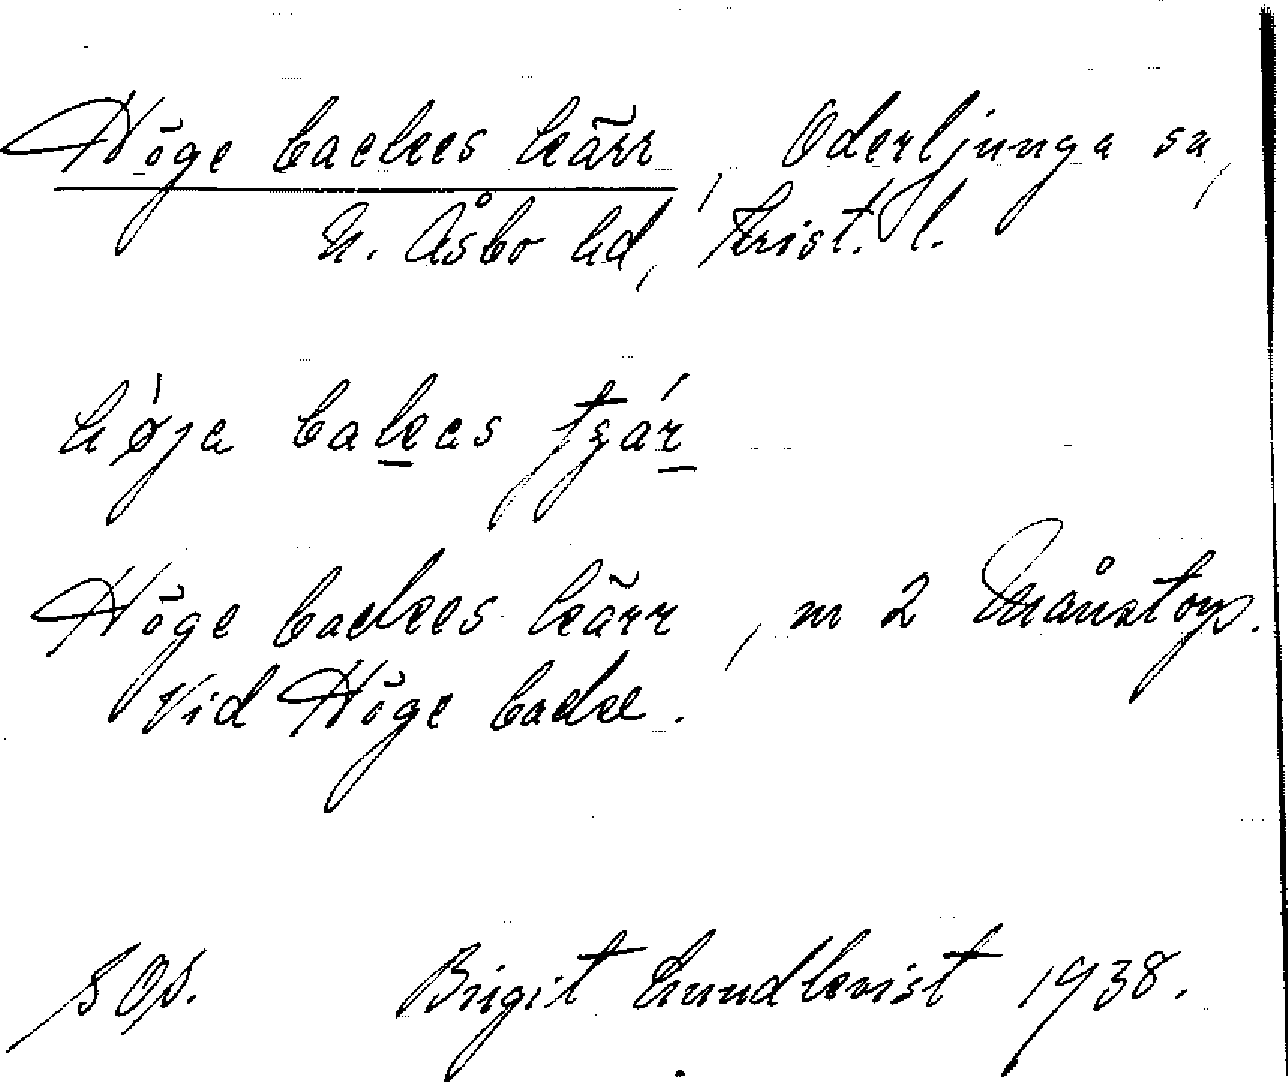 Höge backes kärr, Oderljunga sn,
N. Åsbo hd, Krist. l.
höja bakas tjár
Höge backes kärr, m 2 Månstorp.
Vid Höge backe.
SOS. Birgit Lundkvist 1938.